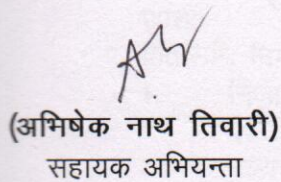 (अभिषेक नाथ तिवारी)
सहायक अभियन्ता